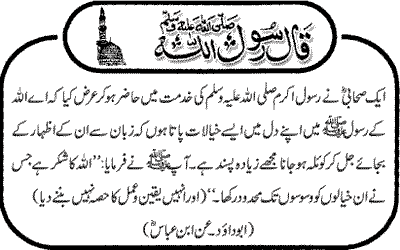 قال رسول اللہ صلی اللہ علیہ وسلم
ایک صحابیؓ نے رسول اکرم صلی اللہ علیہ وسلم کی خدمت میں حاضر ہو کر عرض کیا کہ اے اللہ
کے رسول ﷺ میں اپنے دل میں ایسے خیالات پاتا ہوں کہ زبان سے ان کے اظہار کے
بجائے جل کر کوئلہ ہو جانا مجھے زیادہ پسند ہے۔ آپ ﷺ نے فرمایا: ’’اللہ کا شکر ہے جس
نے ان خیالوں کو وسوسوں تک محدود رکھا۔‘‘ (اور انہیں یقین و عمل کا حصہ نہیں بننے دیا)
(ابوداؤد۔ عن ابن عباسؓ)